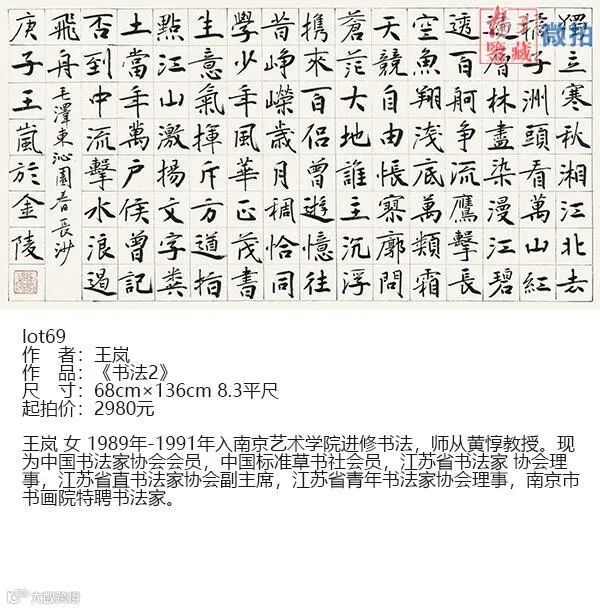 獨立寒秋湘江北去
橘子洲頭看萬山紅
遍層林盡染漫江碧
透百舸争流鷹擊長
空魚翔淺底萬類霜
天競自由悵寥廓問
蒼茫大地誰主沉浮
携來百侣曾遊憶往
昔崢嶸歲月稠恰同
學少年風華正茂書
生意氣揮斥方遒指
點江山激揚文字糞
土當年萬户侯曾記
否到中流擊水浪遏
飛舟
毛澤東沁園春長沙
庚子王嵐於金陵
微拍
lot69
作　者：王岚
作　品：《书法2》
尺　寸：68cm×136cm 8.3平尺
起拍价：2980元
王岚 女 1989年-1991年入南京艺术学院进修书法，师从黄惇教授。现
为中国书法家协会会员，中国标准草书社会员，江苏省书法家 协会理
事，江苏省直书法家协会副主席，江苏省青年书法家协会理事，南京市
书画院特聘书法家。
大数跨境